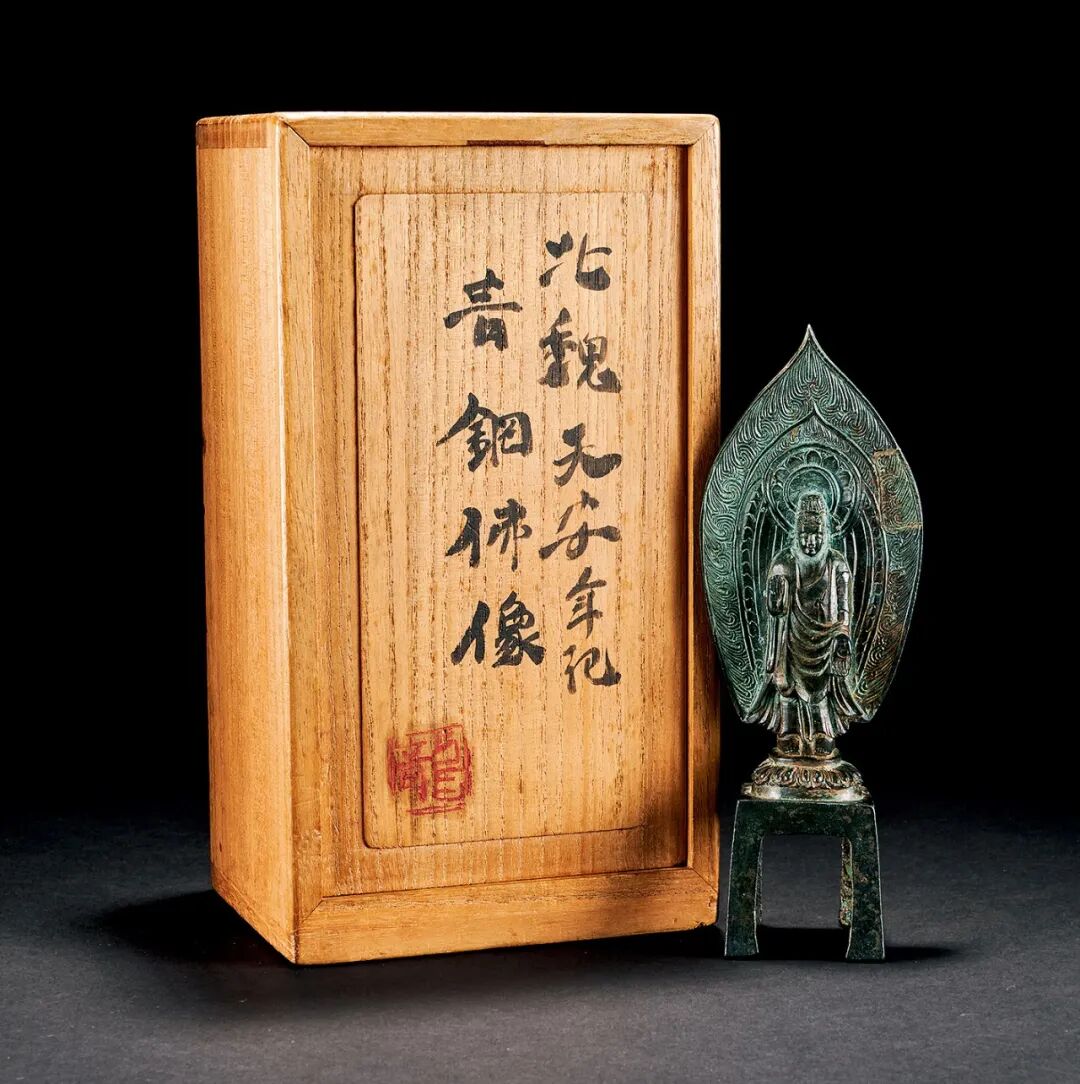 北魏天安年紀
青銅佛像